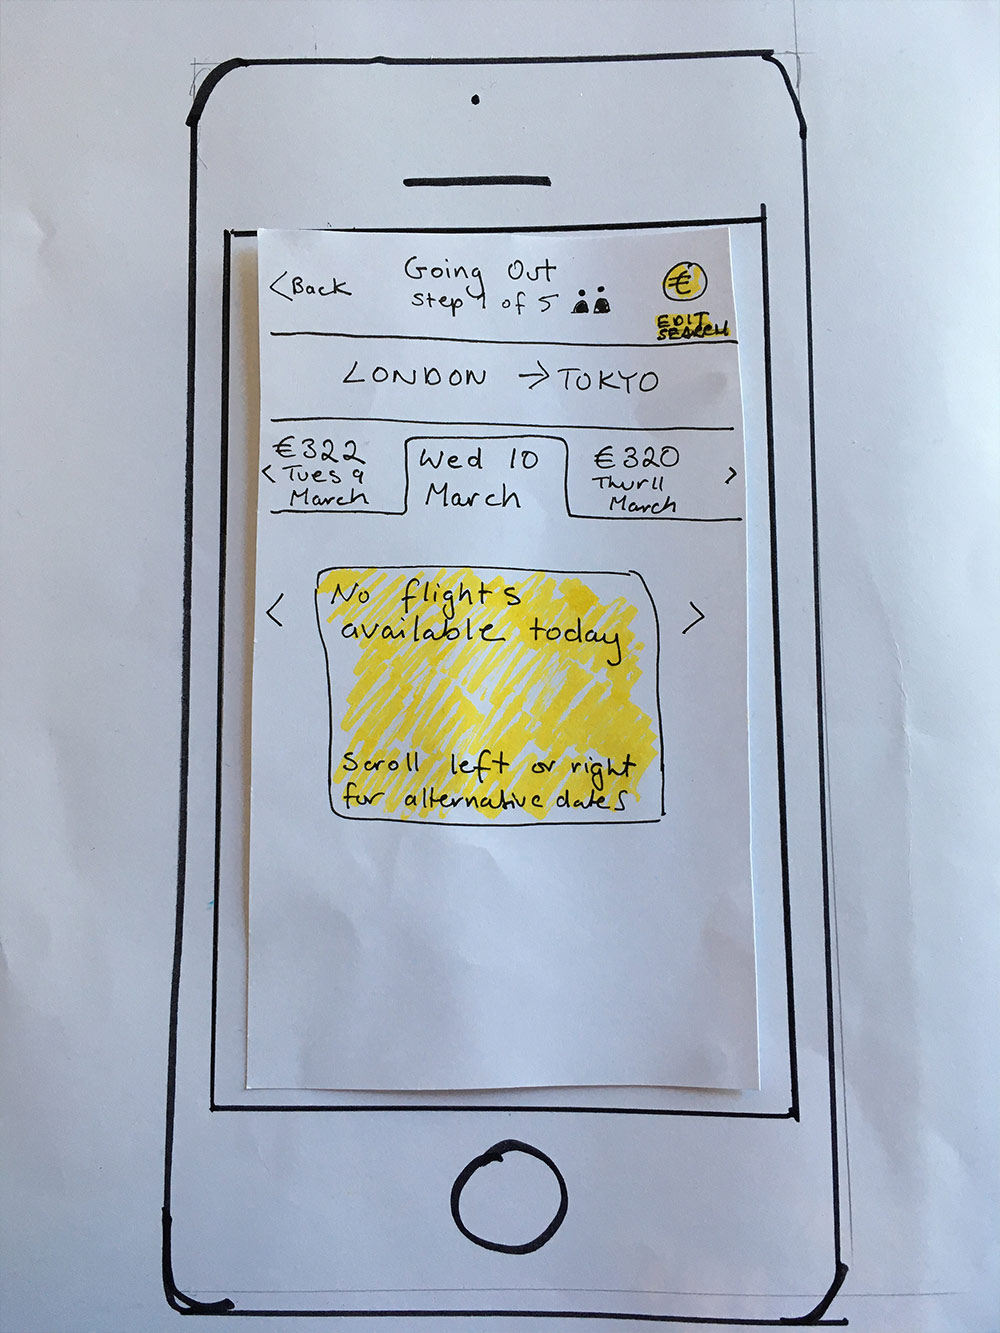 < Back
Going Out
Step 1 of 5
€
EDIT
SEARCH
LONDON → TOKYO
€322
< Tues 9
March
Wed 10
March
€320
Thur 11 >
March
< >
No flights
available today
Scroll left or right
for alternative dates